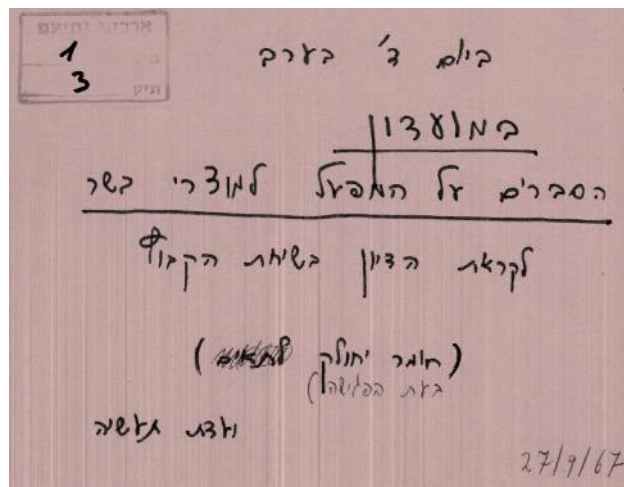 1
3
תיק
ביום ד' בערב
במועדון
הסברים על המפעל למוצרי בשר
לקראת הדיון בשיחת הקבוץ
(חומר יחולק)
בעת הפגישה)
ועדת תעשיה
27/9/67